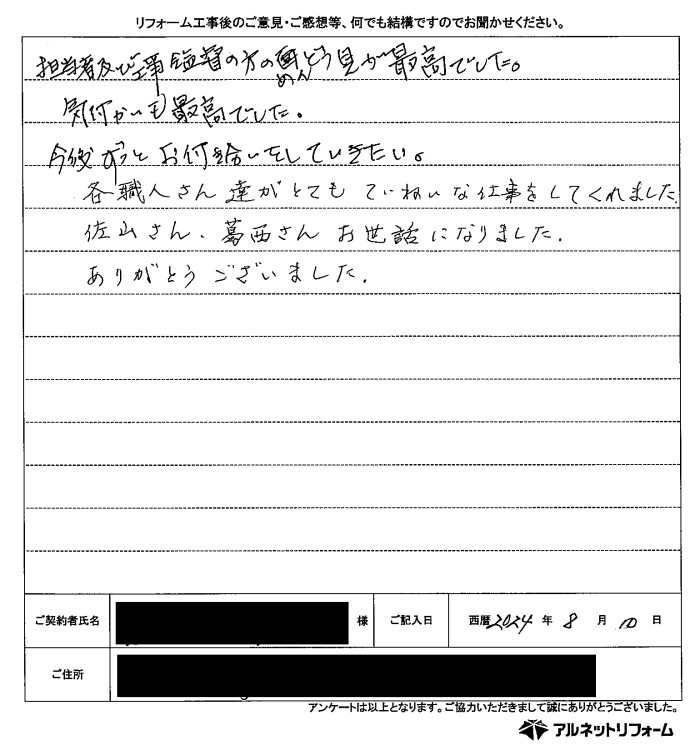 リフォーム工事後のご意見・ご感想等、何でも結構ですのでお聞かせください。
担当者及び工事監督の方の面どう見が最高でした。
めん
気付かいも最高でした。
今後ずっとお付き合いをしていきたい。
各職人さん達がとてもていねいな仕事をしてくれました
佐山さん、葛西さんお世話になりました.
ありがとうございました.
ご契約者氏名 様 ご記入日 西暦2024年8月10日
ご住所
アンケートは以上となります。ご協力いただきまして誠にありがとうございました。
アルネットリフォーム